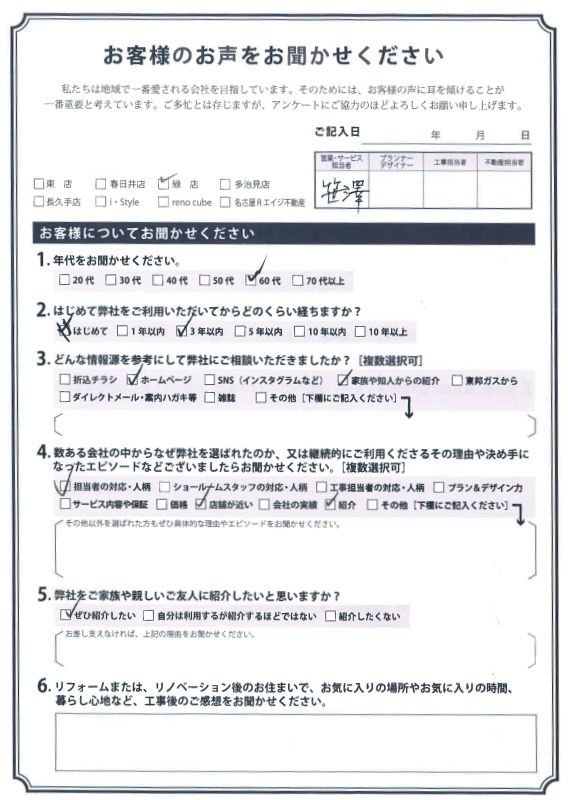 お客様のお声をお聞かせください
私たちは地域で一番愛される会社を目指しています。そのためには、お客様の声に耳を傾けることが
一番重要と考えています。ご多忙とは存じますが、アンケートにご協力のほどよろしくお願い申し上げます。
ご記入日 年 月 日
営業・サービス担当者 プランナーデザイナー 工事担当者 不動産担当者
笹澤
□東 店 □春日井店 ☑緑 店 □多治見店
□長久手店 □i・Style □reno cube □名古屋Rエイジ不動産
お客様についてお聞かせください
1. 年代をお聞かせください。
□20代 □30代 □40代 □50代 ☑60代 □70代以上
2. はじめて弊社をご利用いただいてからどのくらい経ちますか?
☒はじめて □1年以内 ☑3年以内 □5年以内 □10年以内 □10年以上
3. どんな情報源を参考にして弊社にご相談いただきましたか?[複数選択可]
□折込チラシ ☑ホームページ □SNS(インスタグラムなど) ☑家族や知人からの紹介 □東邦ガスから
□ダイレクトメール・案内ハガキ等 □雑誌 □その他[下欄にご記入ください]
4. 数ある会社の中からなぜ弊社を選ばれたのか、又は継続的にご利用くださるその理由や決め手に
なったエピソードなどございましたらお聞かせください。[複数選択可]
☑担当者の対応・人柄 □ショールームスタッフの対応・人柄 □工事担当者の対応・人柄 □プラン&デザイン力
□サービス内容や保証 □価格 ☑店舗が近い □会社の実績 ☑紹介 □その他[下欄にご記入ください]
その他以外を選ばれた方もぜひ具体的な理由やエピソードをお聞かせください。
5. 弊社をご家族や親しいご友人に紹介したいと思いますか?
☑ぜひ紹介したい □自分は利用するが紹介するほどではない □紹介したくない
お差し支えなければ、上記の理由をお聞かせください。
6. リフォームまたは、リノベーション後のお住まいで、お気に入りの場所やお気に入りの時間、
暮らし心地など、工事後のご感想をお聞かせください。